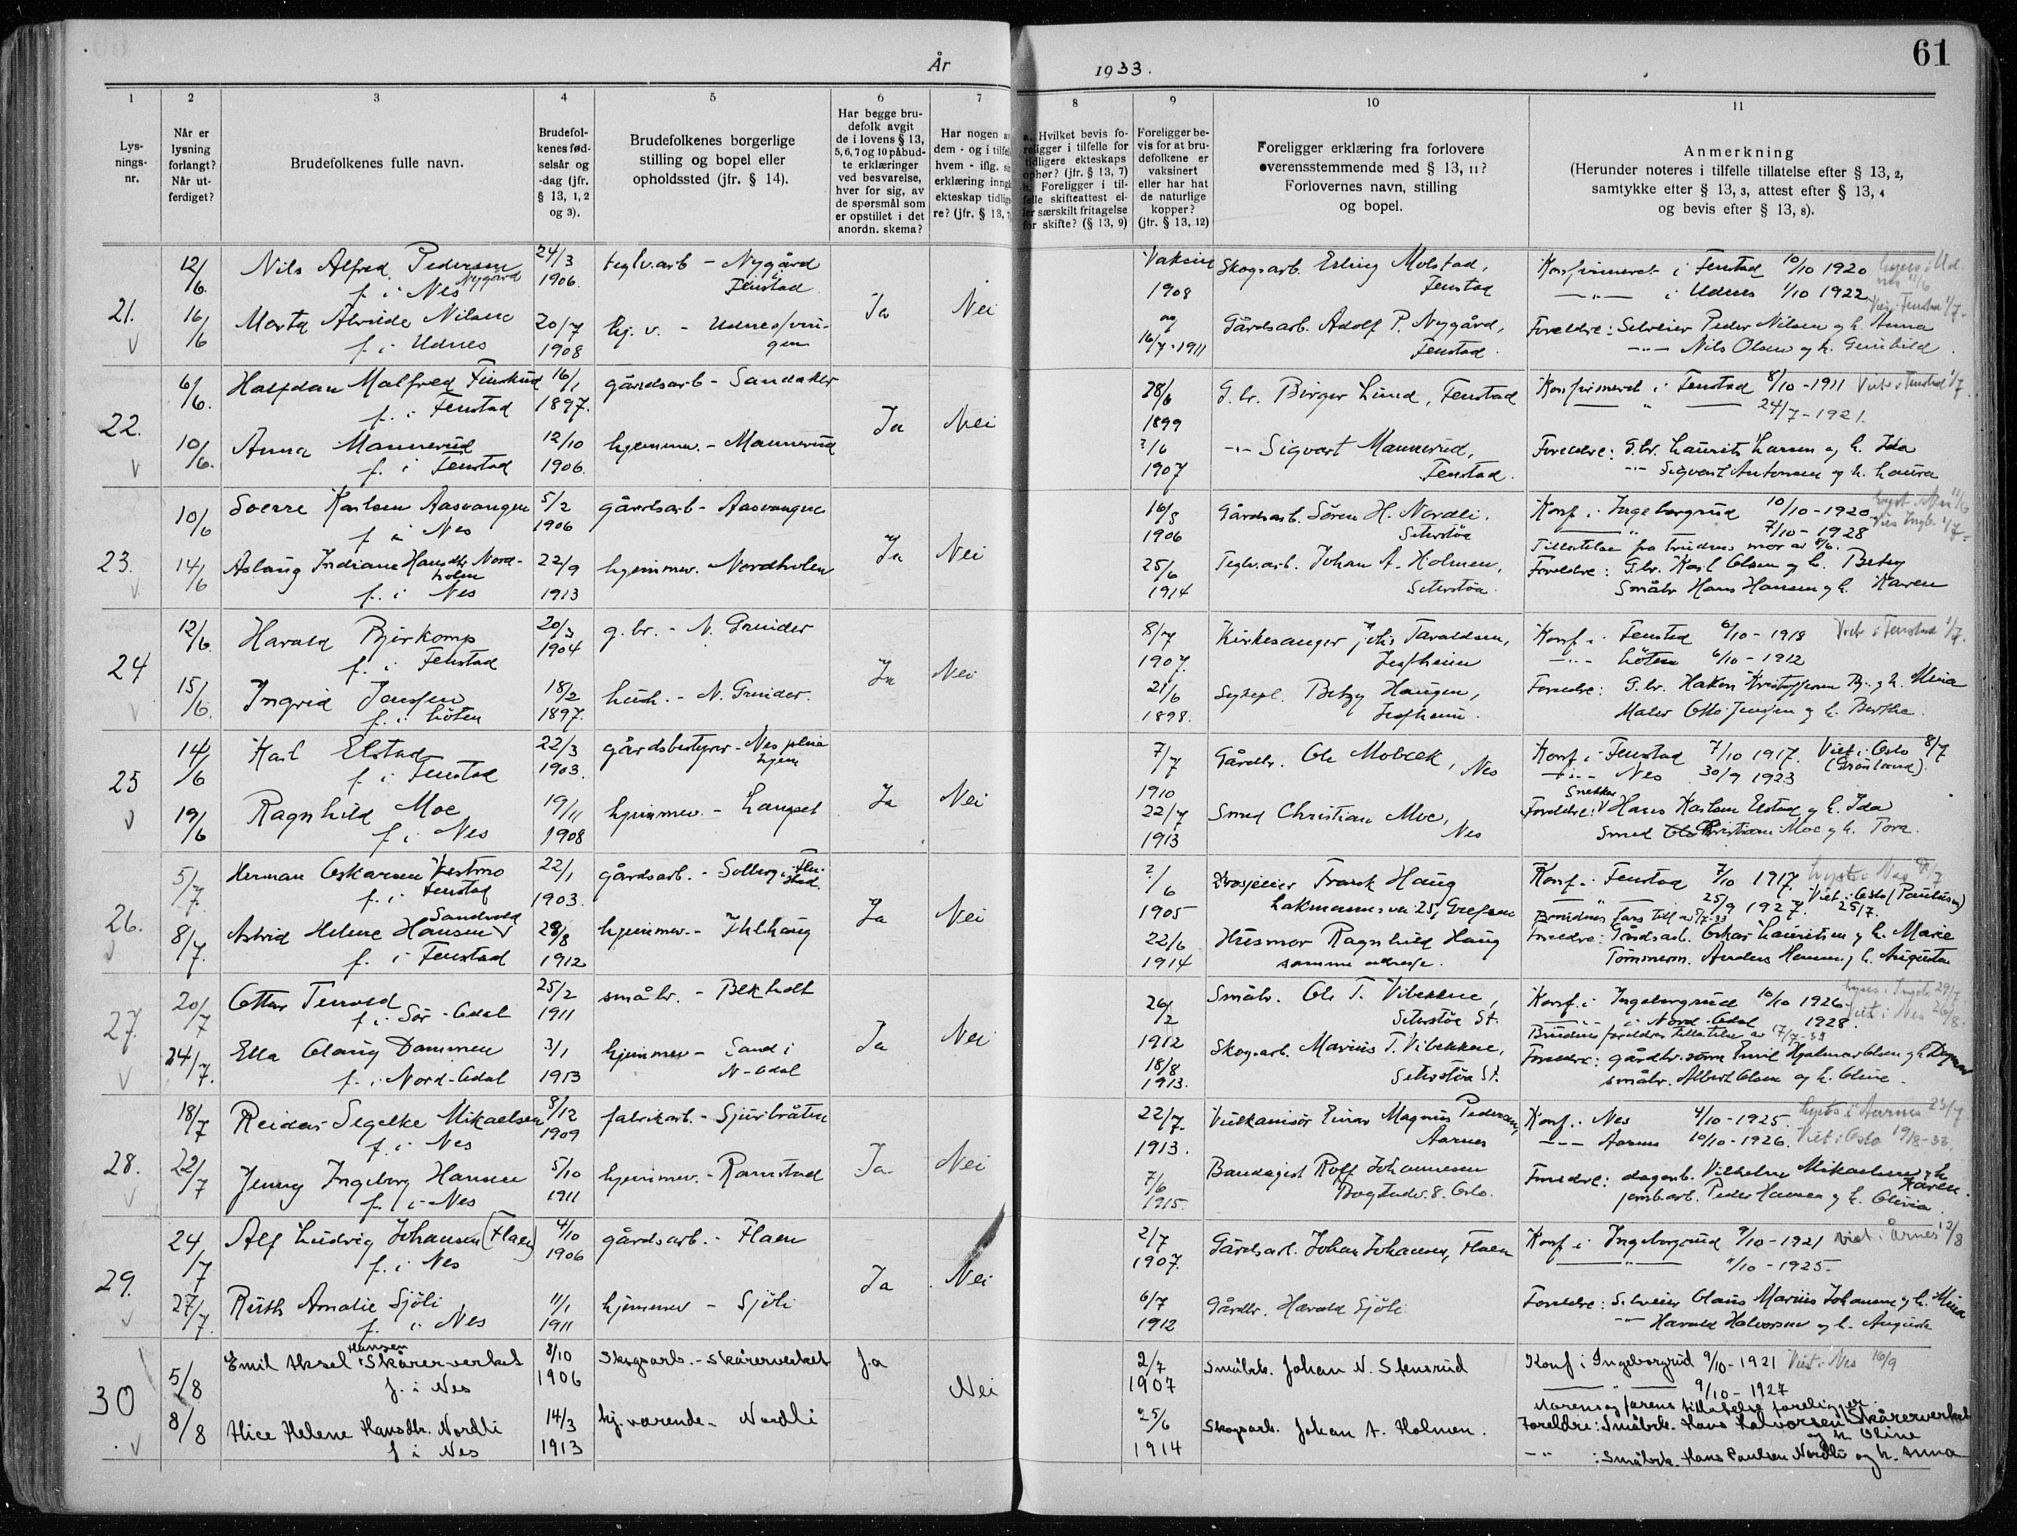 61
År 1933.
1 2 3 4 5 6 7 8 9 10 11
Lysnings-nr.
Når er lysning forlangt? Når utferdiget?
Brudefolkenes fulle navn.
Brudefolkenes fødselsår og -dag (jfr. § 13, 1, 2 og 3).
Brudefolkenes borgerlige stilling og bopel eller opholdssted (jfr. § 14).
Har begge brudefolk avgit de i lovens § 13, 5, 6, 7 og 10 påbudte erklæringer ved besvarelse, hver for sig, av de spørsmål som er opstillet i det anordn. skema?
Har nogen dem - og i tilfe hvem - iflg. erklæring inng ekteskap tidlig re? (jfr. § 13,
Hvilket bevis foreligger i tilfelle for tidligere ekteskaps ophør? (jfr. § 13, 7) Foreligger i tilfelle skifteattest eller særskilt fritagelse for skifte? (§ 13, 9)
Foreligger bevis for at brudefolkene er vaksinert eller har hat de naturlige kopper? (jfr. § 13, 12)
Foreligger erklæring fra forlovere overensstemmende med § 13, 11? Forlovernes navn, stilling og bopel.
Anmerkning (Herunder noteres i tilfelle tillatelse efter § 13, 2, samtykke efter § 13, 3, attest efter § 13, 4 og bevis efter § 13, 8).
21.
12/6. Nils Alfred Pedersen Nygård f. i Nes 24/3 1906. teglv.arb - Nygård i Fenstad
16/6 Marta Alvilde Nilsen f. i Udnes 20/7 1908 hj. v. - Udnes
Ja Nei
Vaksin 1908 og 16/7-1911
Skogsarb. Erling Molstad, Fenstad
Gårdsarb. Adolf P. Nygård, Fenstad.
Konfirmeret i Fenstad 10/10 1920
—„— i Udnes 1/10 1922
Viet i Fenstad 1/7.
Foreldre: Selveier Peder Nilsen og h. Anna
—„— Nils Olsen og h. Gunhild.
22.
6/6. Halfdan Malfred f. i Fenstad 16/1 1897. gårdsarb - Sandaker
10/6. Anna Mannerud f. i Fenstad 12/10 1906. hjemmev. - Mannerud
Ja Nei
28/6 1899
?/6 1907
G.br. Birger Lund, Fenstad
—„— Sigvart Mannerud, Fenstad.
Konfirmeret i Fenstad 8/10-1911 Viet i Fenstad 1/7.
—„— 24/7-1921.
Foreldre: G.br. Laurits Larsen og h. Ida
—„— Sigvart Antonsen og h. Laura
23.
10/6 Sverre Karlsen Aasvangen f. i Nes 5/2 1906 gårdsarb - Aasvangen
14/6 Aslaug Indiane Hansdtr. Nordholen f. i Nes 22/9 1913 hjemmev. Nordholen
Ja Nei
16/5 1906
25/6 1914
Gårdsarb. Søren H. Nordli. Seterstøa
Teglv.arb. Johan A. Holmen, Seterstøa.
Konf. i Ingeborgrud 10/10-1920
7/10-1928
Tillatelse fra brudens mor av 8/6.
Foreldre: G.br. Karl Olsen og h. Betsy
Småbr Hans Hansen og h. Karen
24
12/6. Harald Bjerkomp f. i Fenstad 20/3 1904 g.br. - N. Grinder
15/6. Ingrid Jensen f. i Löten 18/2 1897. hush. - N. Grinder.
Ja Nei
8/7 1907.
21/6 1898.
Kirkesanger Johs Taraldsen, Jessheim
Sykepl. Betzy Haugen, Jessheim.
Konf. i Fenstad 6/10-1918 Viet i Fenstad 1/7.
—„— Löten 6/10-1912
Foreldre: G.br. Hakon Kristoffersen Bj. og h. Mina
Maler Otto Jensen og h. Berthe.
25
14/6 Karl Elstad f. i Fenstad 22/3 1903. gårdsbestyrer - Nes pleiehjem
19/6 Ragnhild Moe f. i Nes 19/11 1908 hjemmev. - Langset
Ja Nei
7/7 1910
22/7 1913
Gårdbr. Ole Mobæk, Nes
Smed Christian Moe, Nes
Konf. i Fenstad 7/10 1917. Viet i Oslo 8/7 (Grønland).
—„— Nes 30/9 1923
Foreldre: Snekker Hans Karlsen Elstad og h. Ida
Smed Christian Moe og h. Tora.
26.
5/7. Herman Oskarsen Vestmo f. i Fenstad 22/1 1903. gårdsarb. - Solberg i Fenstad.
8/7. Astrid Helene Hansen Sandvold f. i Fenstad 28/8 1912 hjemmev. - Ihlhaug
Ja Nei
?/6 1905
22/6 1914
Drosjeeier Frank Haug Lakmannsvei 25, Grefsen
Husmor Ragnhild Haug samme adresse.
Konf. i Fenstad 7/10 1917.
25/9 1927. Viet i Oslo (Paulus) 25/7.
Brudens fars till. av 5/7-33
Foreldre: Gårdsarb. Oskar Lauritsen og h. Marie
Tömmerm. Anders Hansen og h. Augusta
27.
20/7 Ottar Tenvold f. i Sör-Odal 25/2 1911 småbr. - Bekholt
24/7. Ella Olaug Dammen f. i Nord-Odal 3/1 1913 hjemmev - Sand i N-Odal
Ja Nei
26/2 1912
18/8 1913.
Småbr. Ole T. Vibekkene, Seterstöa St.
Skogsarb. Marius T. Vibekkene, Seterstöa St.
Konf. i Ingeborgrud 10/10 1926.
i Nord-Odal 1928. Viet i Nes 26/8.
Brudens foreldres tillatelse av 17/7-33
Foreldre: gårdbr. Emil Hjalmar Olsen og h. Dagmar
småbr. Albert Olsen og h. Oline.
28.
18/7 Reidar Segelke Mikaelsen f. i Nes 8/12 1909 fabrikarb. - Sjuribråten
22/7 Jenny Ingeborg Hansen f. i Nes 5/10 1911 hjemmev. - Ramstad
Ja Nei
22/7. 1913.
7/6 1915.
Vulkanisör Einar Magnus Pedersen, Aarnes
Bandagist Rolf Johannesen Bogstadv. 8. Oslo.
Konf. i Nes 4/10-1925. Lyst i Aarnes 23/7
—„— Aarnes 10/10-1926. Viet i Oslo 19/8-33.
Foreldre: dagarb. Vilhelm Mikaelsen og h. Karen.
jernb.arb. Peder Hansen og h. Olivia.
29.
24/7 Alf Ludvig Johansen (Flaen) f. i Nes 4/10 1906 gårdsarb. - Flaen
27/7. Ruth Amalie Sjöli f. i Nes 11/1 1911 hjemmev - Sjöli
Ja Nei
2/7 1907.
6/7 1912
Gårdsarb. Johan Johansen, Flaen
Gårdbr. Harald Sjöli
Konf i Ingeborgrud 9/10-1921 viet i Årnes 12/8
—„— 11/10-1925.
Foreldre: Selveier Olaus Marius Johansen og h. Mina
—„— Harald Halvorsen og h. Auguste
30
5/8 Emil Aksel Hansen Skårerverket f. i Nes 8/10 1906 Skogsarb. - Skårerverket
8/8 Alice Helene Hansdtr. Nordli f. i Nes 14/3 1913 hj. værende - Nordli
Ja Nei
2/7 1907
25/6 1914
Småbrk. Johan N. Stensrud
Skogsarb. Johan A. Holmen.
Konf i Ingeborgrud 9/10-1921 Viet i Nes 16/9
—„— 9/10-1927
Morens og farens tillatelse foreligger.
Foreldre: Småbrk. Hans Halvorsen Skårerverket og h. Oline
—„— : Småbrk. Hans Paulsen Nordli og h. Anna